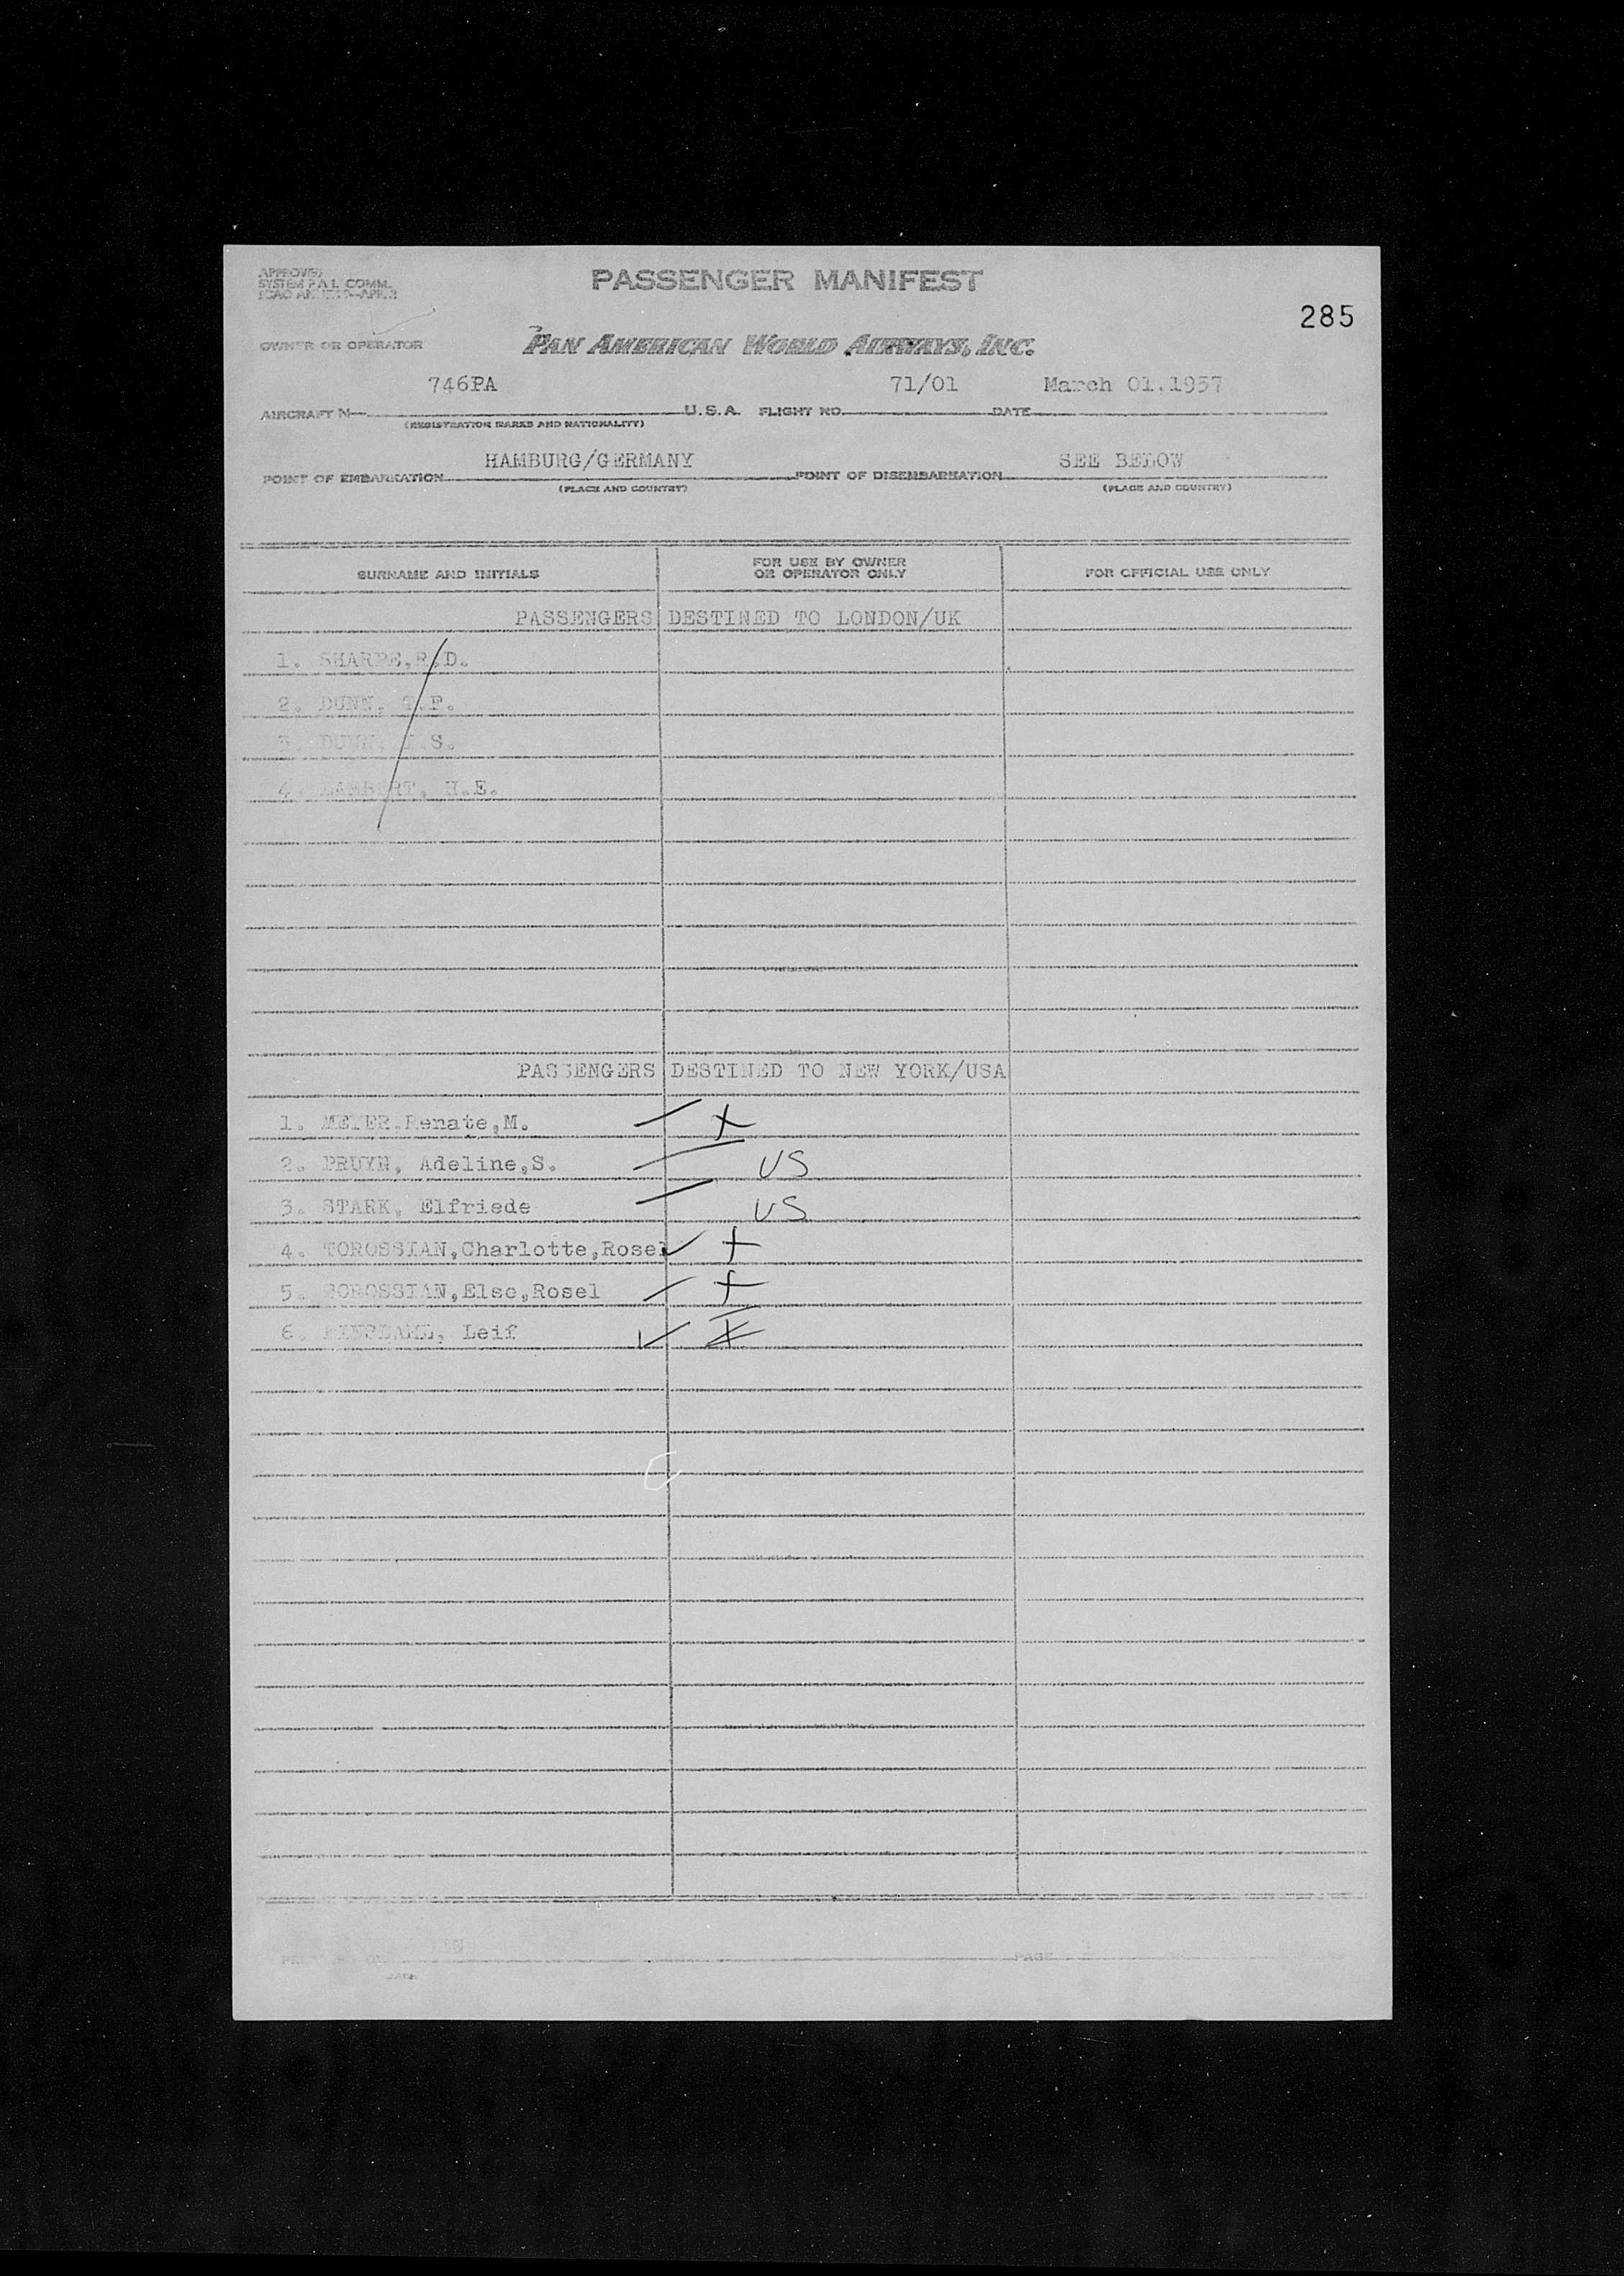 APPROVED
SYSTEM P.A.L. COMM.
PASSENGER MANIFEST
285
OWNER OR OPERATOR PAN AMERICAN WORLD AIRWAYS, INC.
746PA 71/01 March 01.1957
AIRCRAFT N U.S.A. FLIGHT NO. DATE
(REGISTRATION MARKS AND NATIONALITY)
HAMBURG/GERMANY SEE BELOW
POINT OF EMBARKATION POINT OF DISEMBARKATION
(PLACE AND COUNTRY) (PLACE AND COUNTRY)
SURNAME AND INITIALS FOR USE BY OWNER OR OPERATOR ONLY FOR OFFICIAL USE ONLY
PASSENGERS DESTINED TO LONDON/UK
1. SHARPE,R.D.
2. DUNN, T.F.
3. DUNN, .S.
4. LAMBERT, H.E.
PASSENGERS DESTINED TO NEW YORK/USA
1. MEYER.Renate,M. +
2. PRUYN, Adeline,S. US
3. STARK, Elfriede US
4. TOROSSIAN,Charlotte,Rosel ✓ +
5. TOROSSIAN,Else,Rosel +
6. Leif ✓
PAGE
DATE